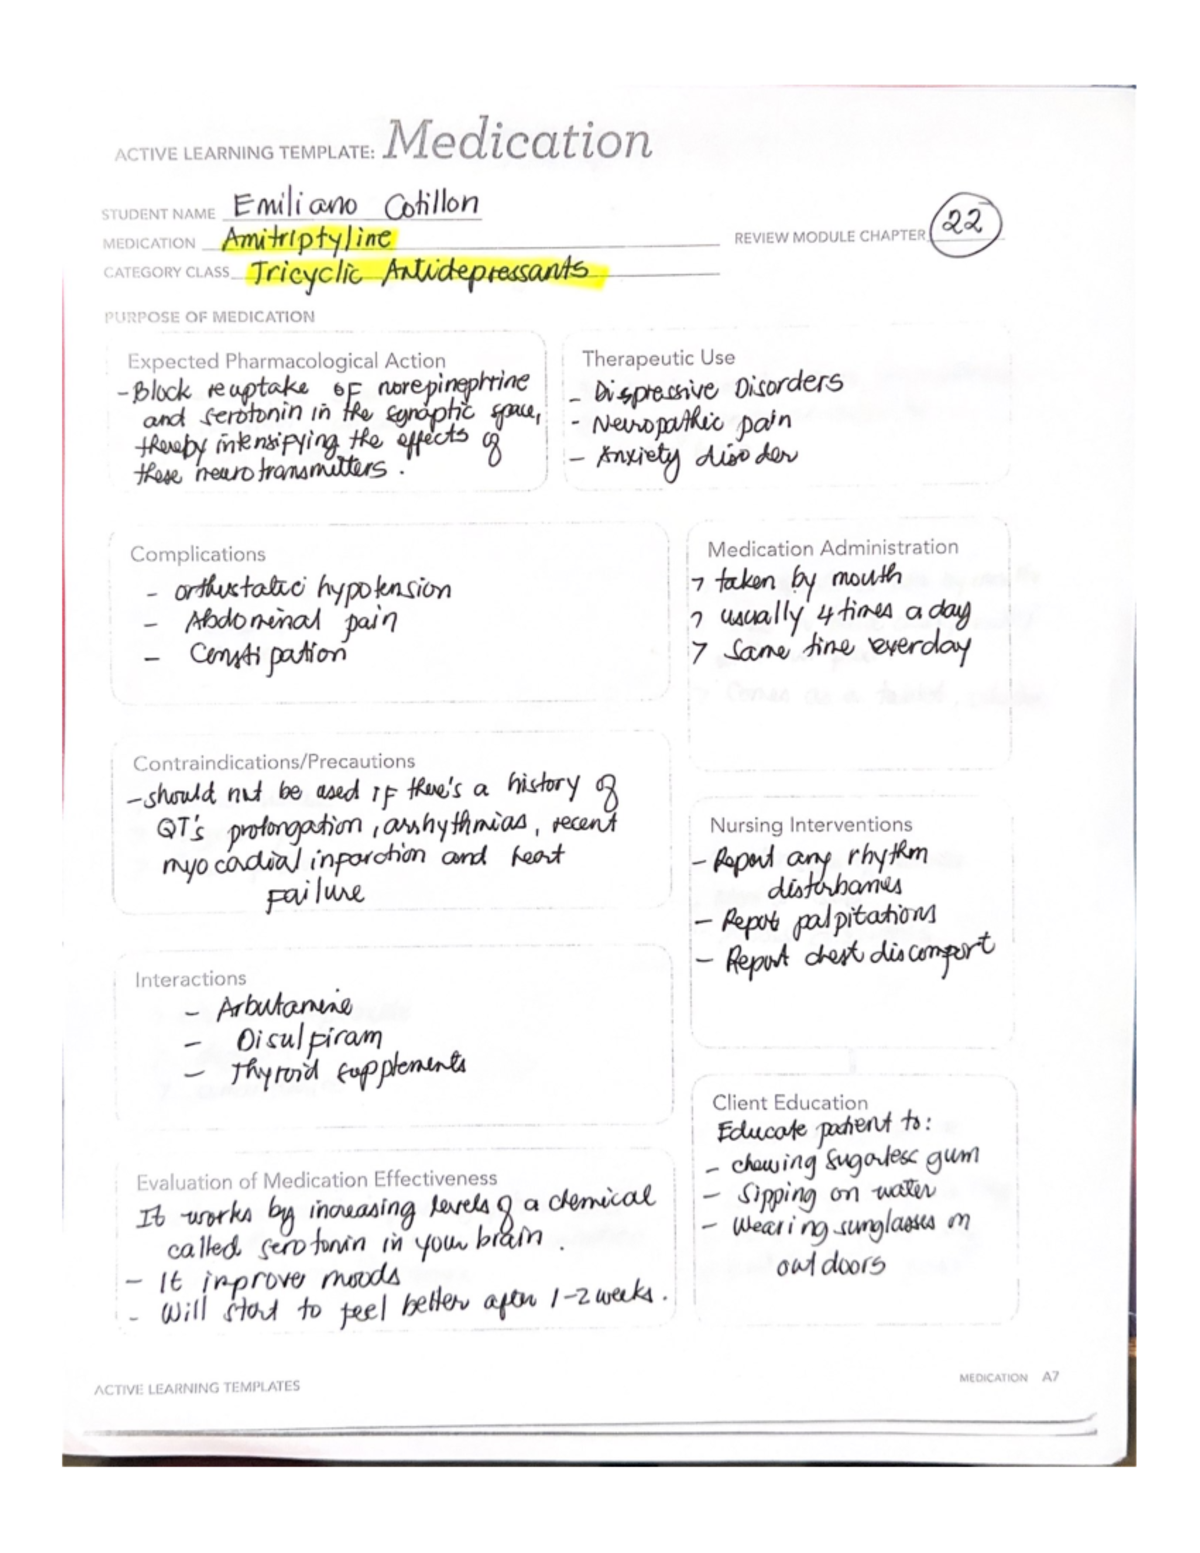 ACTIVE LEARNING TEMPLATE: Medication
STUDENT NAME Emiliano Cotillon
MEDICATION Amitriptyline
REVIEW MODULE CHAPTER 22
CATEGORY CLASS Tricyclic Antidepressants
PURPOSE OF MEDICATION
Expected Pharmacological Action
- Block reuptake of norepinephrine
and serotonin in the synaptic space,
thereby intensifying the effects of
these neurotransmitters.
Therapeutic Use
- Dispressive Disorders
- Neuropathic pain
- Anxiety disoder
Complications
- orthustatic hypotension
- Abdominal pain
- Constipation
Medication Administration
> taken by mouth
> usually 4 times a day
> Same time everday
Contraindications/Precautions
- should not be used if there's a history of
QT's prolongation, arrhythmias, recent
myocadial infarction and heart
failure
Nursing Interventions
- Report any rhythm
disturbances
- Report palpitations
- Report chest discomfort
Interactions
- Arbutamine
- Disulfiram
- Thyroid supplements
Client Education
Educate patient to:
- chewing sugarless gum
- Sipping on water
- Wearing sunglasses on
outdoors
Evaluation of Medication Effectiveness
It works by increasing levels of a chemical
called serotonin in your brain.
- It improve moods
- Will start to feel better after 1-2 weeks.
ACTIVE LEARNING TEMPLATES
MEDICATION A7